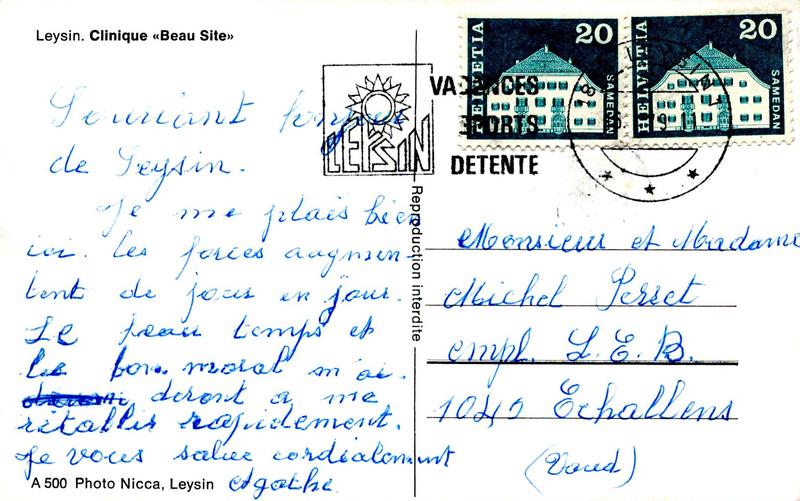 Leysin. Clinique «Beau Site»
HELVETIA 20 SAMEDAN
HELVETIA 20 SAMEDAN
LEYSIN
VACANCES
SPORTS
DETENTE
Souriant bonjour
de Leysin.
Je me plais bien
ici. Les forces augmen-
tent de jour en jour.
Le beau temps et
le bon moral m'ai-
deront a me
rétablir rapidement.
Je vous salue cordialement
Agathe
Reproduction interdite
Monsieur et Madame
Michel Perret
empl. L. E. B.
1040 Echallens
(Vaud)
A 500 Photo Nicca, Leysin